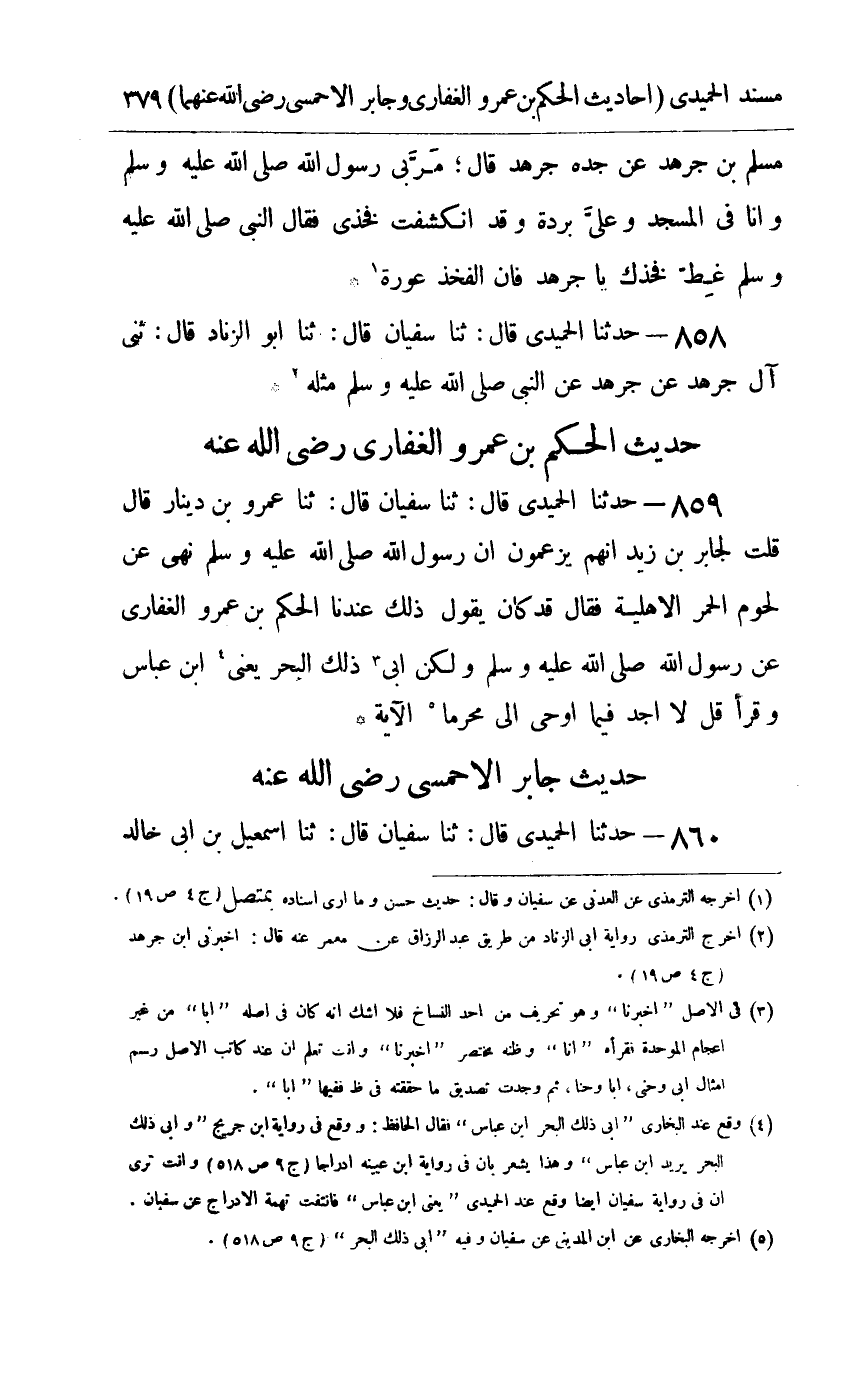 مسند الحميدى (احاديث الحكم بن عمرو الغفارى وجابر الاحمسى رضى الله عنهما) ٣٧٩
مسلم بن جرهد عن جده جرهد قال؛ مَرَّبى رسول الله صلى الله عليه و سلم
و انا فى المسجد و علىَّ بردة و قد انكشفت فخذى فقال النبى صلى الله عليه
و سلم غَطِّ فخذك يا جرهد فان الفخذ عورة١ ※
٨٥٨ – حدثنا الحميدى قال: ثنا سفيان قال: ثنا ابو الزناد قال: ثنى
آل جرهد عن جرهد عن النبى صلى الله عليه و سلم مثله٢ ※
حديث الحكم بن عمرو الغفارى رضى الله عنه
٨٥٩ – حدثنا الحميدى قال: ثنا سفيان قال: ثنا عمرو بن دينار قال
قلت لجابر بن زيد انهم يزعمون ان رسول الله صلى الله عليه و سلم نهى عن
لحوم الحمر الاهلية فقال قد كان يقول ذلك عندنا الحكم بن عمرو الغفارى
عن رسول الله صلى الله عليه و سلم و لكن ابى٣ ذلك البحر يعنى٤ ابن عباس
و قرأ قل لا اجد فيما اوحى الى محرما٥ الآية ※
حديث جابر الاحمسى رضى الله عنه
٨٦٠ – حدثنا الحميدى قال: ثنا سفيان قال: ثنا اسمعيل بن ابى خالد
(١) اخرجه الترمذى عن العدنى عن سفيان و قال: حديث حسن و ما ارى اسناده بمتصل (ج ٤ ص ١٩).
(٢) اخرج الترمذى رواية ابى الزناد من طريق عبد الرزاق عن معمر عنه قال: اخبرنى ابن جرهد
(ج ٤ ص ١٩).
(٣) فى الاصل "اخبرنا" و هو تحريف من احد النساخ فلا اشك انه كان فى اصله "ابا" من غير
اعجام الموحدة فقرأه "انا" و ظنه مختصر "اخبرنا" و انت تعلم ان عند كاتب الاصل رسم
امثال ابى وحنى، ابا وحنا، ثم وجدت تصديق ما حققته فى ظ ففيها "ابا".
(٤) وقع عند البخارى "ابى ذلك البحر ابن عباس" فقال الحافظ: و وقع فى رواية ابن جريج "و ابى ذلك
البحر يريد ابن عباس" و هذا يشعر بان فى رواية ابن عيينه ادراجا (ج ٩ ص ٥١٨) و انت ترى
ان فى رواية سفيان ايضا وقع عند الحميدى "يعنى ابن عباس" فانتفت تهمة الادراج عن سفيان.
(٥) اخرجه البخارى عن ابن المدينى عن سفيان و فيه "ابى ذلك البحر" (ج ٩ ص ٥١٨).